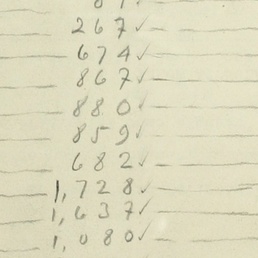 267✓
674✓
867✓
880✓
859✓
682✓
1,728✓
1,637✓
1,080✓